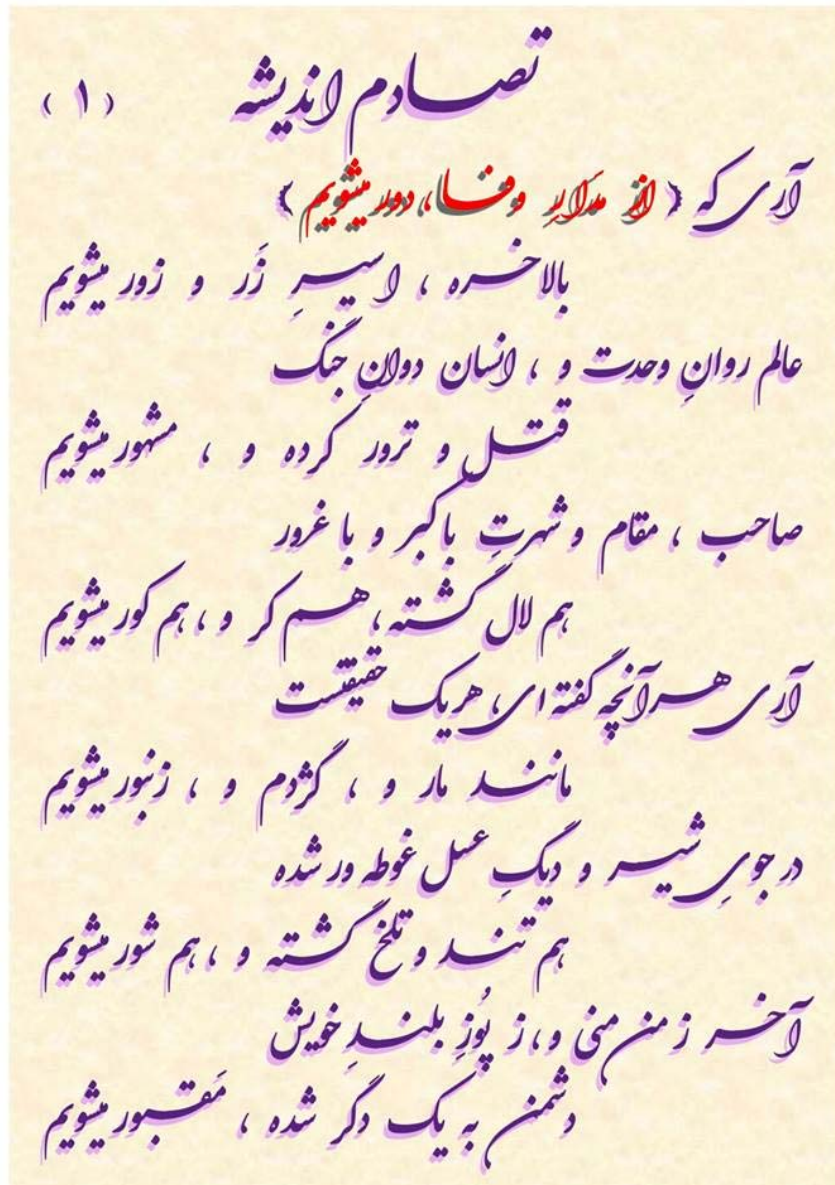 تصادم اندیشه
( ۱ )
آری که ( از مَدَارِ وفا، دور میشویم )
بالاخره ، اسیرِ زَر و زور میشویم
عالم روانِ وحدت و ، انسان دوانِ جنگ
قتل و ترور کرده و ، مشهور میشویم
صاحب ، مقام و شهرتِ با کبر و با غرور
هم لال گشته ، هم کر و ، هم کور میشویم
آری هرآنچه گفته ای ، هریک حقیقتست
مانند مار و ، گژدم و ، زنبور میشویم
در جویِ شیر و دیگِ عسل غوطه ور شده
هم تند و تلخ گشته و ، هم شور میشویم
آخر ز من منی و ، ز پُوزِ بلندِ خویش
دشمن به یک دگر شده ، مَقبور میشویم